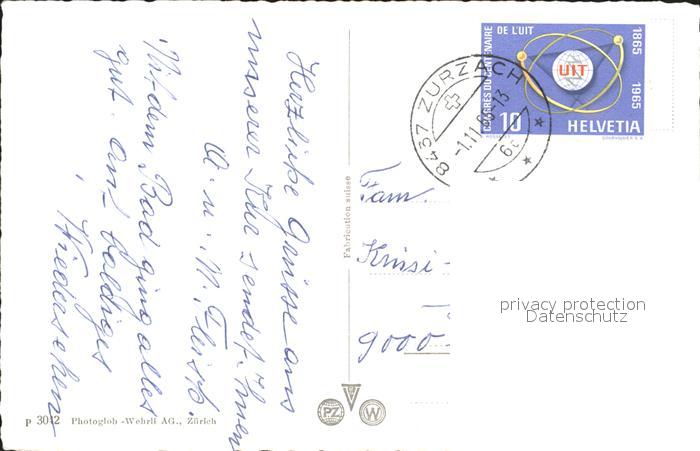 Herzliche Grüsse aus
unserer Kur sendet Ihnen
A. u. M.
Mit dem Bad ging alles
gut. auf baldiges
Wiedersehen
Fabrication suisse
Fam.
9000
8437 ZURZACH
-1.11.65-13
CONGRÈS DU CENTENAIRE
DE L'UIT
1865
1965
UIT
10
HELVETIA
COURVOISIER S.A.
privacy protection
Datenschutz
P 3042 Photoglob-Wehrli AG., Zürich
PZ
W